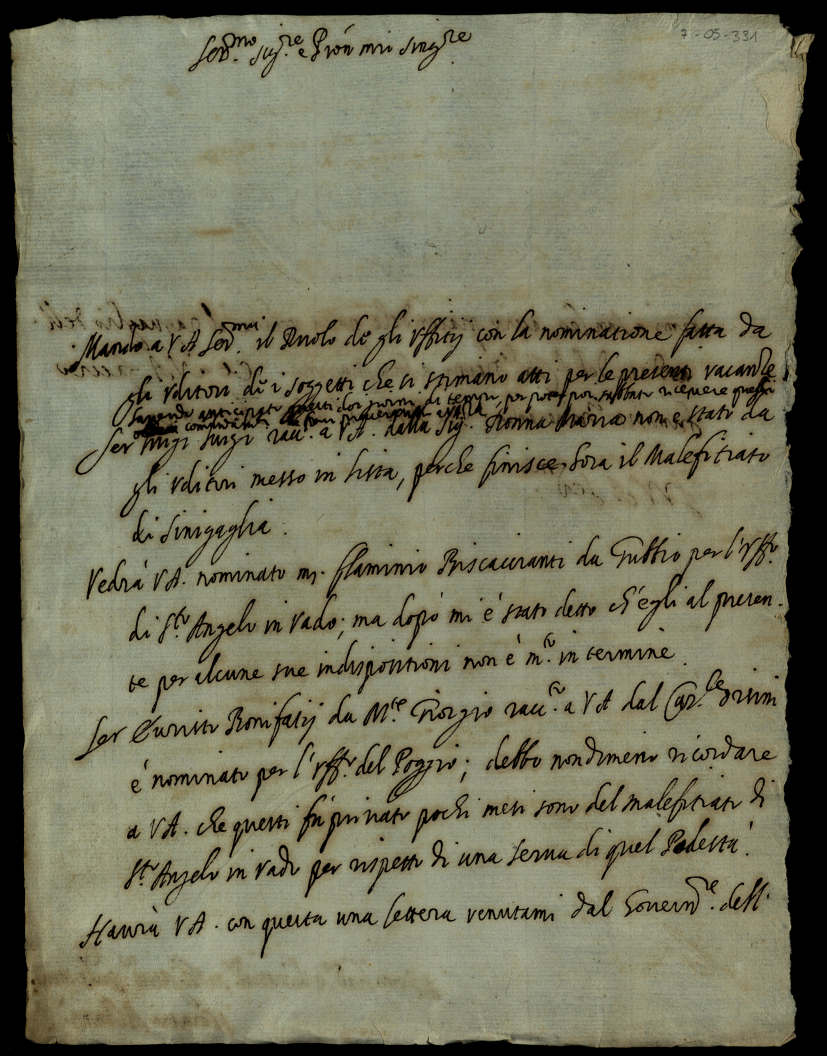 7-05-331
Ser.mo Sig.re e P'ron mio Sing.re
Mando a V A Ser.ma il Ruolo de gli Uffitij con la nominatione fatta da
gli Uditori de i soggetti che si stimano atti per le presenti vacanze
di tempo, per poter poi ricevere questi
Ser Luigi Luigi racc.o a V A. dalla Sig.ra Donna Maria non è stato da
gli Uditori messo in lista, perche finisce hora il Malefitiato
di Sinigaglia.
Vedrà V A. nominato m. Flaminio Biscaccianti da Gubbio per l'Uff.o
di S.to Angelo in Vado; ma dopò mi è stato detto ch'egli al presen-
te per alcune sue indispositioni non è m.to in termine.
Ser Bonifatij da M.te Giorgio racc.to a V A dal Car.le Orsini
è nominato per l'uff.o del Poggio; debbo nondimeno ricordare
a V A. che questi fù privato pochi mesi sono del malefitiato di
S.to Angelo in Vado per rispetto di una serva di quel Podestà.
Havrà V A. con questa una lettera venutami dal Govern.re dell'